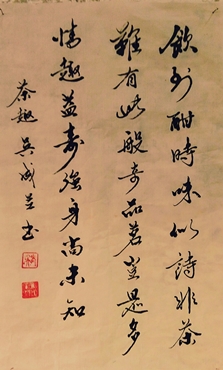 飲到酣時味似詩非茶
難有此般奇品茗豈是多
情趣益壽強身尚未知
茶趣 吳成芝书